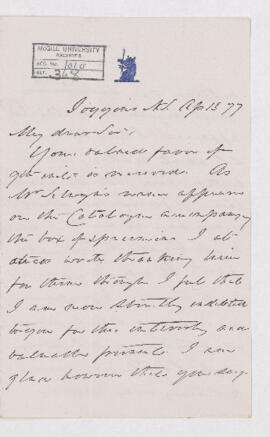 McGILL UNIVERSITY
ARCHIVES
ACC. NO. 1010
REF. 348
Joggins N.S. Ap 13 77
My dear Sir,
Your valued favor of
9th inst is received. As
Mr Selwyn's name appears
on the Catalogue accompanying
the box of specimens I at
once wrote thanking him
for them though I feel that
I am more directly indebted
to you for this interesting and
valuable present. I am
glad however that you